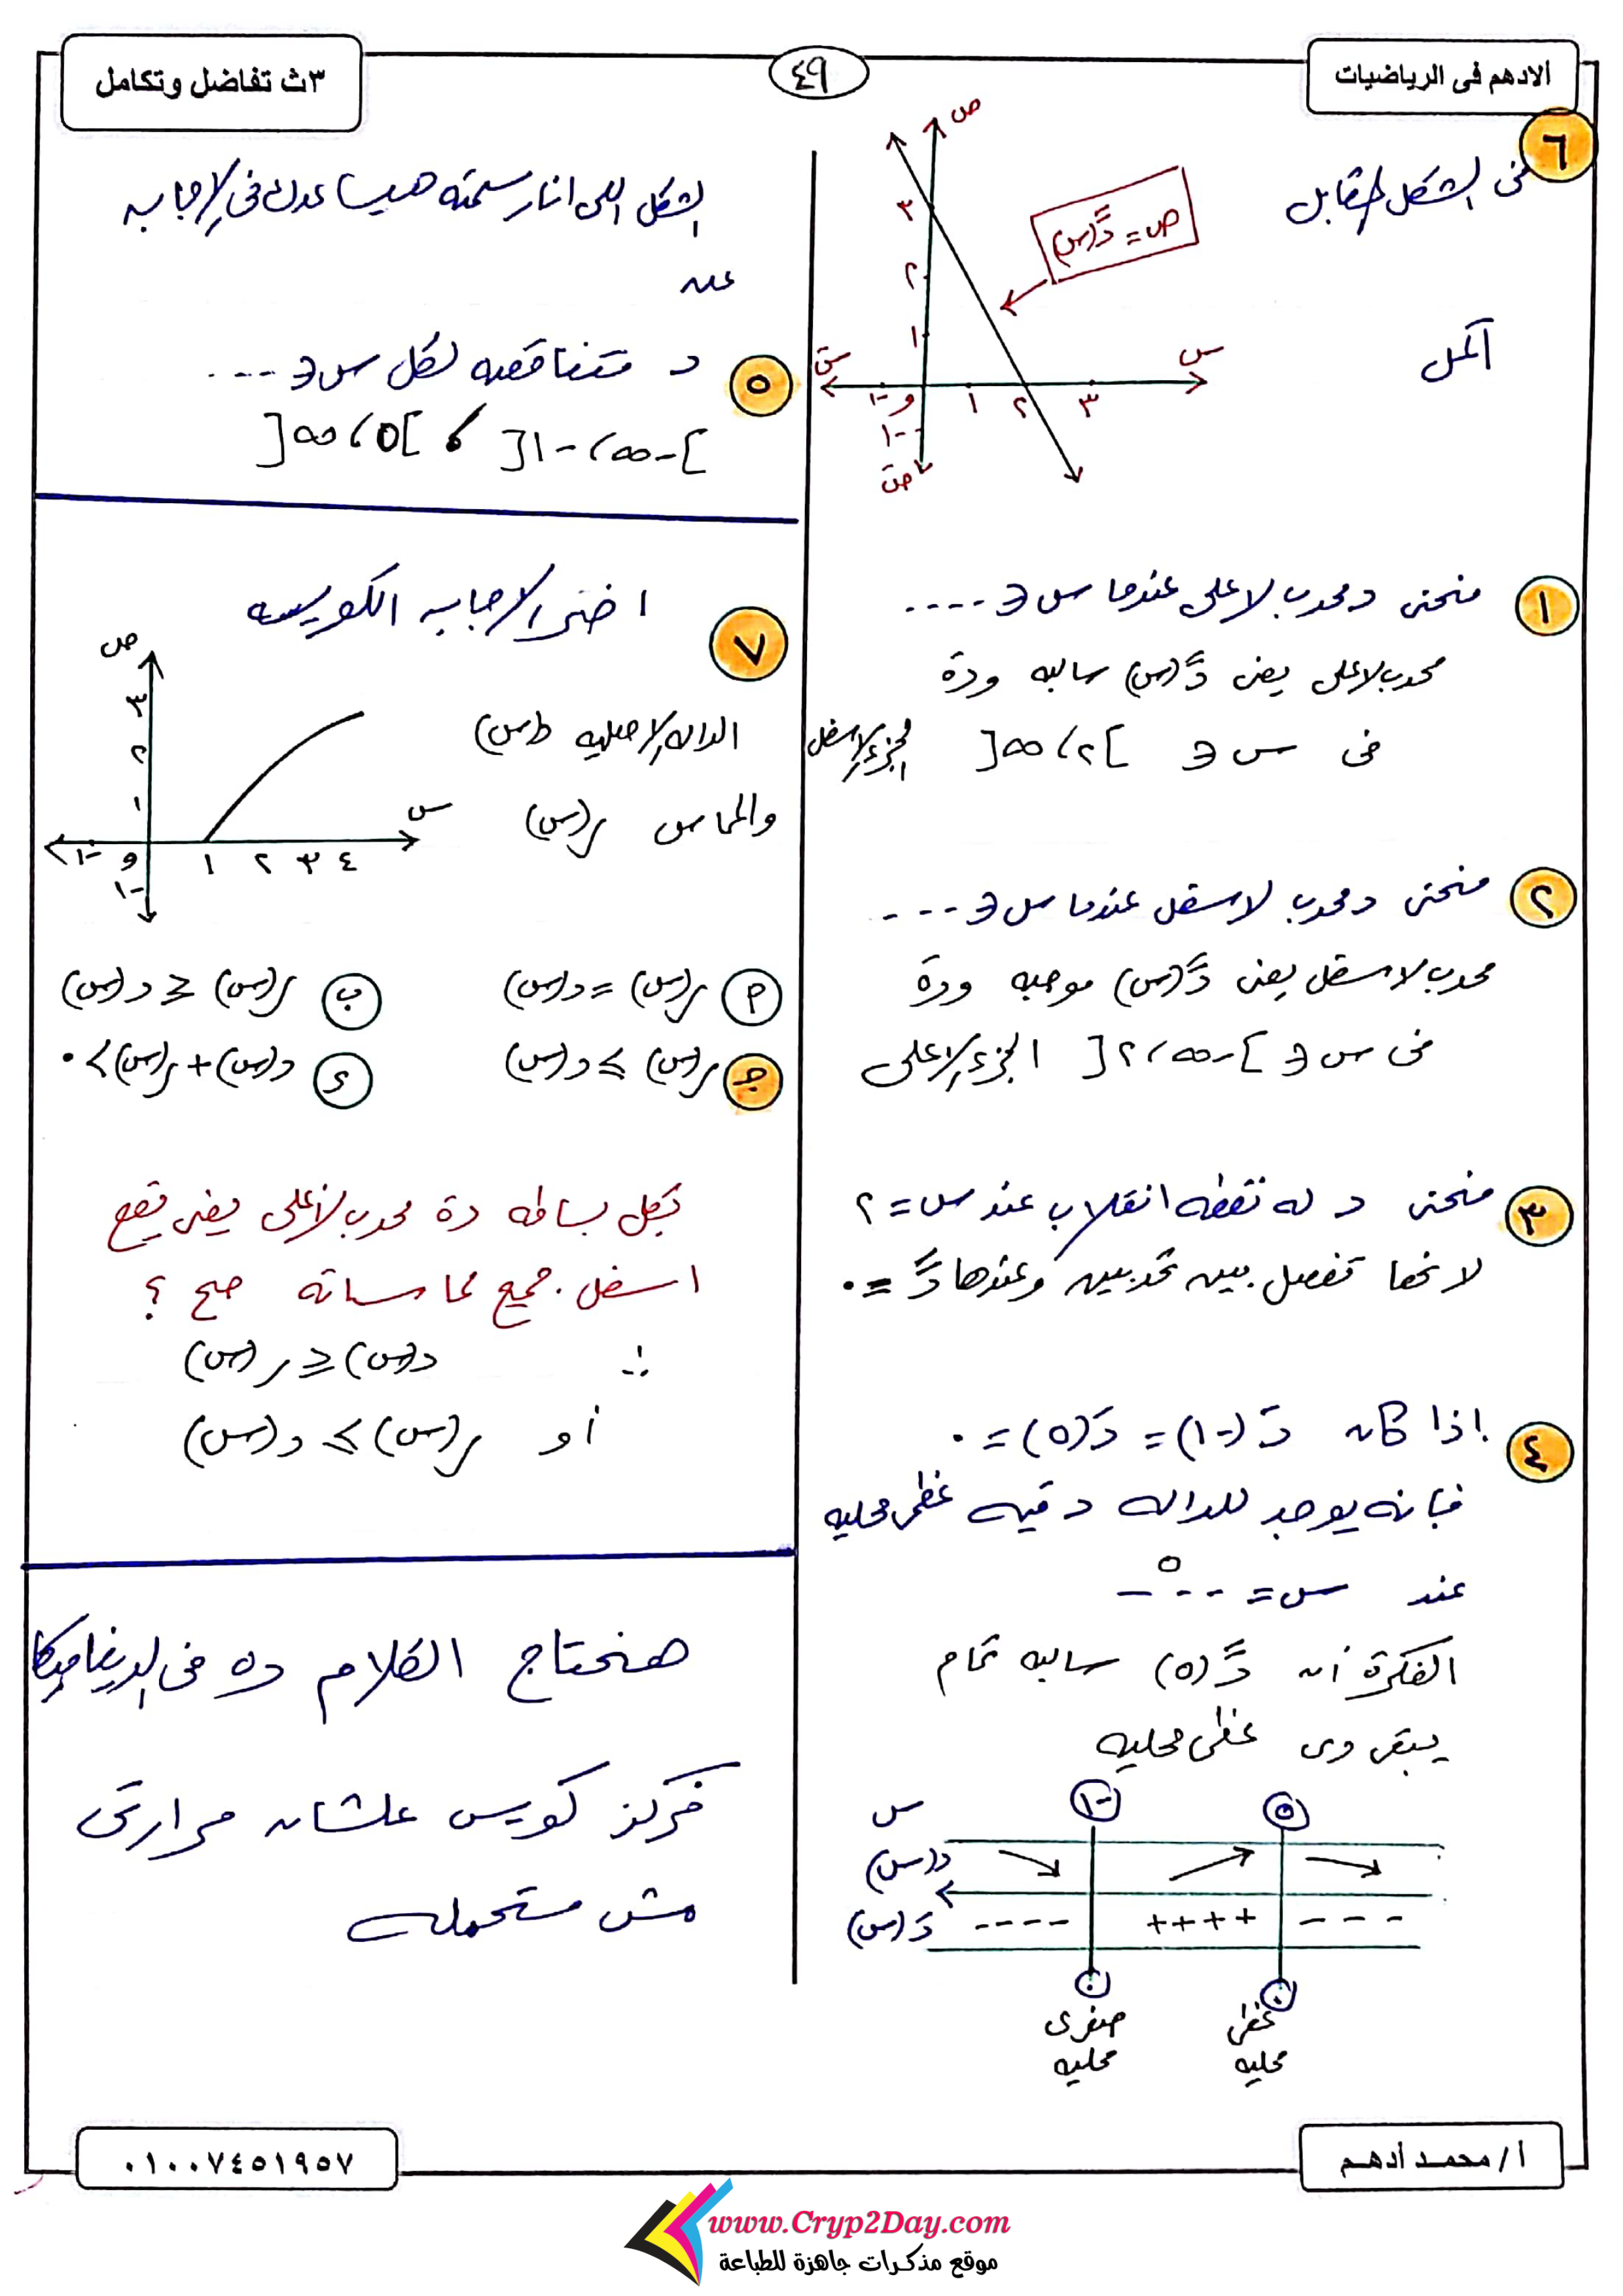 الادهم فى الرياضيات
٤٩
٣ث تفاضل وتكامل
٦
فى الشكل المقابل
أكمل
ص
ص = دً(س)
٣
٢
١
س
سَ
-١ و ١ ٢ ٣
-١
صَ
١ منحنى د محدب لاعلى عندما س ∈ ....
محدب لاعلى يعنى دً(س) سالبه ودة
فى س ∈ ]٢، ∞[ الجزء الاسفل
٢ منحنى د محدب لاسفل عندما س ∈ ....
محدب لاسفل يعنى دً(س) موجبه ودة
فى س ∈ ]-∞، ٢[ الجزء الاعلى
٣ منحنى د له نقطه انقلاب عند س = ٢
لانها تفصل بين تحدبين وعندها دً = ٠
٤ اذا كان دَ(-١) = دَ(٥) = ٠
فبانه يوجد للداله د قيمه عظمى محليه
عند س = ..٥..
الفكرة أن دً(٥) سالبه تمام
يبقى دى عظمى محليه
س -١ ٥
د(س)
دَ(س) ---- ++++ ---
٠ ٠
صغرى محليه
عظمى محليه
الشكل اللى انا رسمته هيساعدك فى الاجابه
عن
٥ د متناقصه لكل س ∈ ....
]-∞، -١[ ، ]٥، ∞[
٧ اختر الاجابه الكويسه
الداله الاصليه د(س)
والمماس ر(س)
ص
٣
٢
١
س
-١ و ١ ٢ ٣ ٤
-١
أ ر(س) = د(س)
ب ر(س) ≤ د(س)
ج ر(س) ≥ د(س)
د د(س) + ر(س) < ٠
بكل بساطه دة محدب لأعلى يعنى يقع
اسفل جميع مماساته صح ؟
∴ د(س) ≤ ر(س)
أو ر(س) ≥ د(س)
هنحتاج الكلام ده فى الديناميكا
فركز كويس علشان مرارتى
مش مستحمله
أ / محمد أدهم
٠١٠٠٧٤٥١٩٥٧
www.Cryp2Day.com
موقع مذكرات جاهزة للطباعة